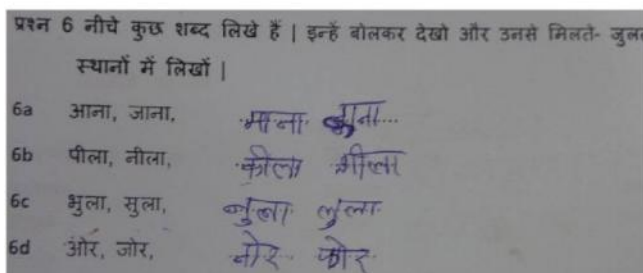 प्रश्न 6 नीचे कुछ शब्द लिखे हैं | इन्हें बोलकर देखो और उनसे मिलते- जुलत
स्थानों में लिखों |
6a आना, जाना, माना
6b पीला, नीला, कीला शीला
6c भुला, सुला, लुला
6d ओर, जोर,